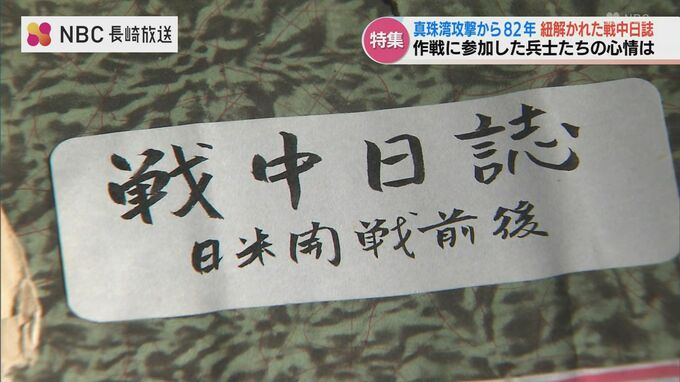 NBC 長崎放送
特集
真珠湾攻撃から82年 紐解かれた戦中日誌
作戦に参加した兵士たちの心情は
戦中日誌
日米開戦前後